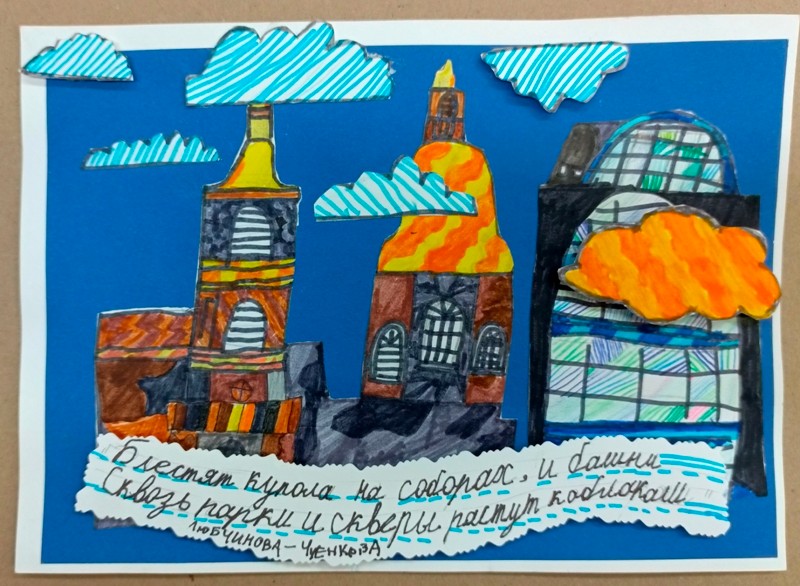 Блестят купола на соборах, и башни
Сквозь парки и скверы растут к облакам
ЛЮБЧИНОВА-ЧУЕНКОВА